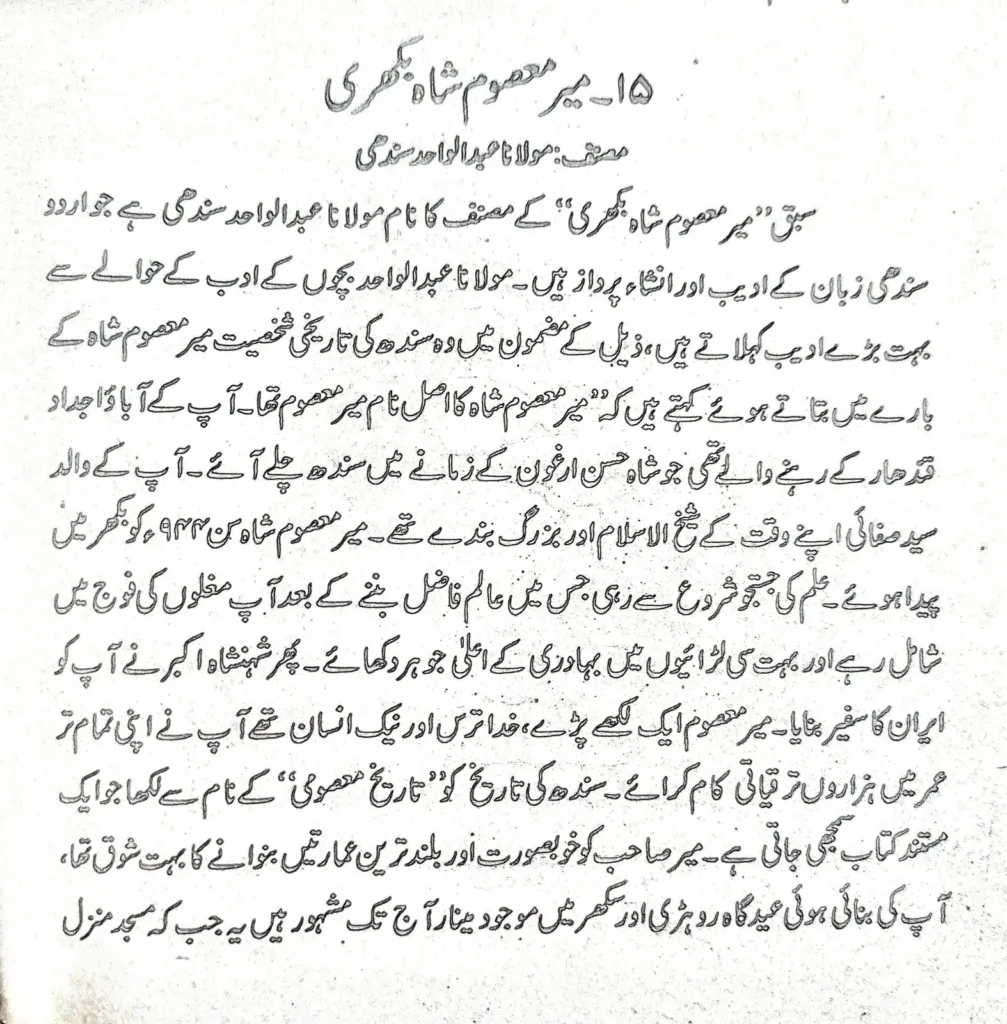 ۱۵۔ میر معصوم شاہ بکھری
مصنف: مولانا عبدالواحد سندھی
سبق ”میر معصوم شاہ بکھری“ کے مصنف کا نام مولانا عبدالواحد سندھی ہے جو اردو
سندھی زبان کے ادیب اور انشاء پرداز ہیں۔ مولانا عبدالواحد بچوں کے ادب کے حوالے سے
بہت بڑے ادیب کہلاتے ہیں، ذیل کے مضمون میں وہ سندھ کی تاریخی شخصیت میر معصوم شاہ کے
بارے میں بتاتے ہوئے کہتے ہیں کہ ”میر معصوم شاہ کا اصل نام میر معصوم تھا۔ آپ کے آباؤاجداد
قندھار کے رہنے والے تھی جو شاہ حسن ارغون کے زمانے میں سندھ چلے آئے۔ آپ کے والد
سید صفائی اپنے وقت کے شیخ الاسلام اور بزرگ بندے تھے۔ میر معصوم شاہ سن ۹۴۴ء کو بکھر میں
پیدا ہوئے۔ علم کی جستجو شروع سے رہی جس میں عالم فاضل بننے کے بعد آپ مغلوں کی فوج میں
شامل رہے اور بہت سی لڑائیوں میں بہادری کے اعلیٰ جوہر دکھائے۔ پھر شہنشاہ اکبر نے آپ کو
ایران کا سفیر بنایا۔ میر معصوم ایک لکھے پڑے، خدا ترس اور نیک انسان تھے آپ نے اپنی تمام تر
عمر میں ہزاروں ترقیاتی کام کرائے۔ سندھ کی تاریخ کو ”تاریخ معصومی“ کے نام سے لکھا جو ایک
مستند کتاب سمجھی جاتی ہے۔ میر صاحب کو خوبصورت اور بلند ترین عمارتیں بنوانے کا بہت شوق تھا،
آپ کی بنائی ہوئی عید گاہ روہڑی اور سکھر میں موجود مینار آج تک مشہور ہیں یہ جب کہ مسجد منزل